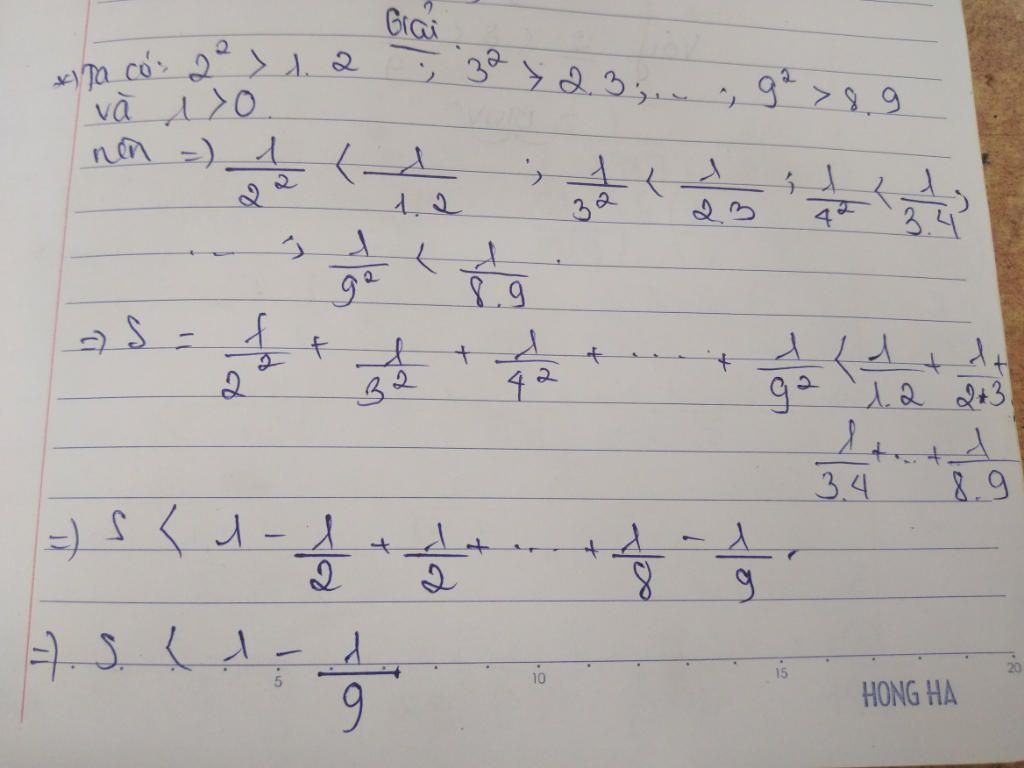 Giải
*) Ta có: 2² > 1.2 ; 3² > 2.3 ; ... ; 9² > 8.9
và 1 > 0
nên => 1/2² < 1/1.2 ; 1/3² < 1/2.3 ; 1/4² < 1/3.4 ;
... ; 1/9² < 1/8.9 .
=> S = 1/2² + 1/3² + 1/4² + .... + 1/9² < 1/1.2 + 1/2.3 +
1/3.4 + ... + 1/8.9
=> S < 1 - 1/2 + 1/2 + .... + 1/8 - 1/9 .
=> S < 1 - 1/9
5 10 15 20
HONG HA